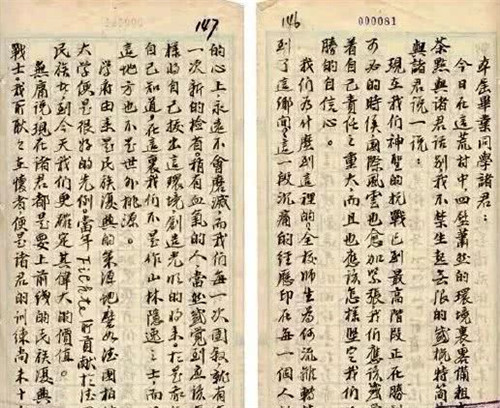 146
000081
本屆畢業同學諸君:
今日在這荒村中,四壁蕭然的環境裏,畧備粗
茶點與諸君話別,我不禁生起無限的感概,特簡
與諸君說一說。
現在我們神聖的抗戰已到最高階段,正在勝
可分的時候,國際風雲也愈加緊張,我們應該感
着自己責任之重大,而且也應該怎樣堅定我們
勝的自信心。
我們為什麼到這裡的?全校師生為何流離轉
到了這鄉間?這一段沉痛的經歷印在每一個人
147
的心上,永遠不會磨滅,而我們每一次回叙就有
一次新的檢省,稍有血氣的人,當然感覺到應該
樣將自己拔出這環境,創造光明的將來,於是
自己知道,在這裏我們不是作山林隱逸之士,而
這地方也不是世外桃源。
學府由來是民族復興的策源地,譬如德國柏
大學便是很好的先例,當年Fichte所貢獻於德
民族,到今天我們更確定其偉大的價值。
無庸說,現在諸君都是要上前線的民族復興
戰士,我所耿耿在懷者,便是諸君的訓練尚未十